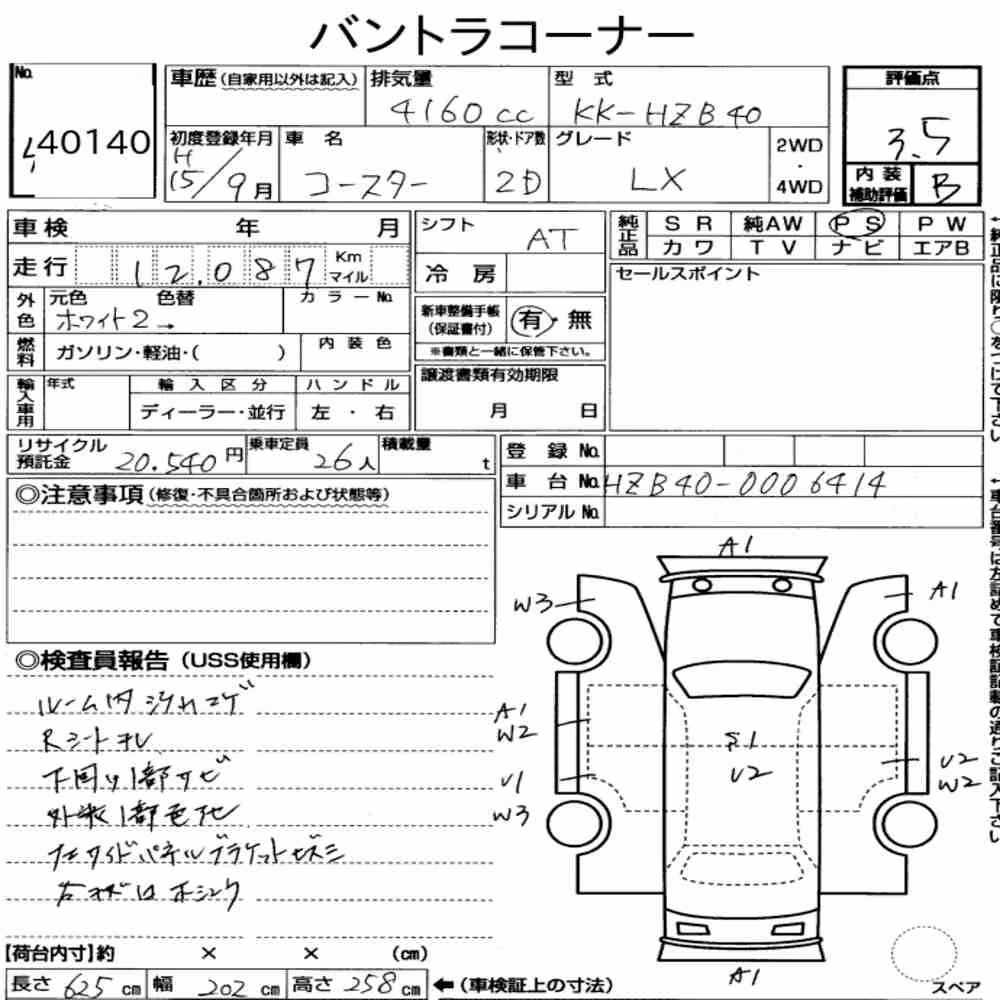 バントラコーナー
No. 40140
車歴(自家用以外は記入) 排気量 4160cc 型式 KK-HZB40
初度登録年月 H15/9月 車名 コースター 形状・ドア数 2D グレード LX 2WD・4WD
評価点 3.5
内装補助評価 B
車検 年 月
走行 12,087 Km マイル
外色 元色 ホワイト2→ 色替 カラーNo.
燃料 ガソリン・軽油・( ) 内装色
輸入車用 年式 輸入区分 ハンドル
ディーラー・並行 左・右
シフト AT
冷房
新車整備手帳(保証書付) 有・無
※書類と一緒に保管下さい。
譲渡書類有効期限
月 日
純正品 SR 純AW PS PW
カワ TV ナビ エアB
セールスポイント
←純正品に限り○をつけて下さい
リサイクル預託金 20.540円 乗車定員 26人 積載量 t
登録No.
車台No. HZB40-0006414
シリアルNo.
←車台番号は左詰めで車検証記載の通りご記入下さい
◎注意事項(修復・不具合箇所および状態等)
◎検査員報告(USS使用欄)
ルーム内 コゲ
Rシート
下回り1部サビ
外装1部色
サイドパネルブラケット
右
A1
W3 A1
A1
W2
S1
U2
U2
W2
U1
W3
A1
【荷台内寸】約 × × (cm)
長さ 625cm 幅 202cm 高さ 258cm ←(車検証上の寸法)
スペア